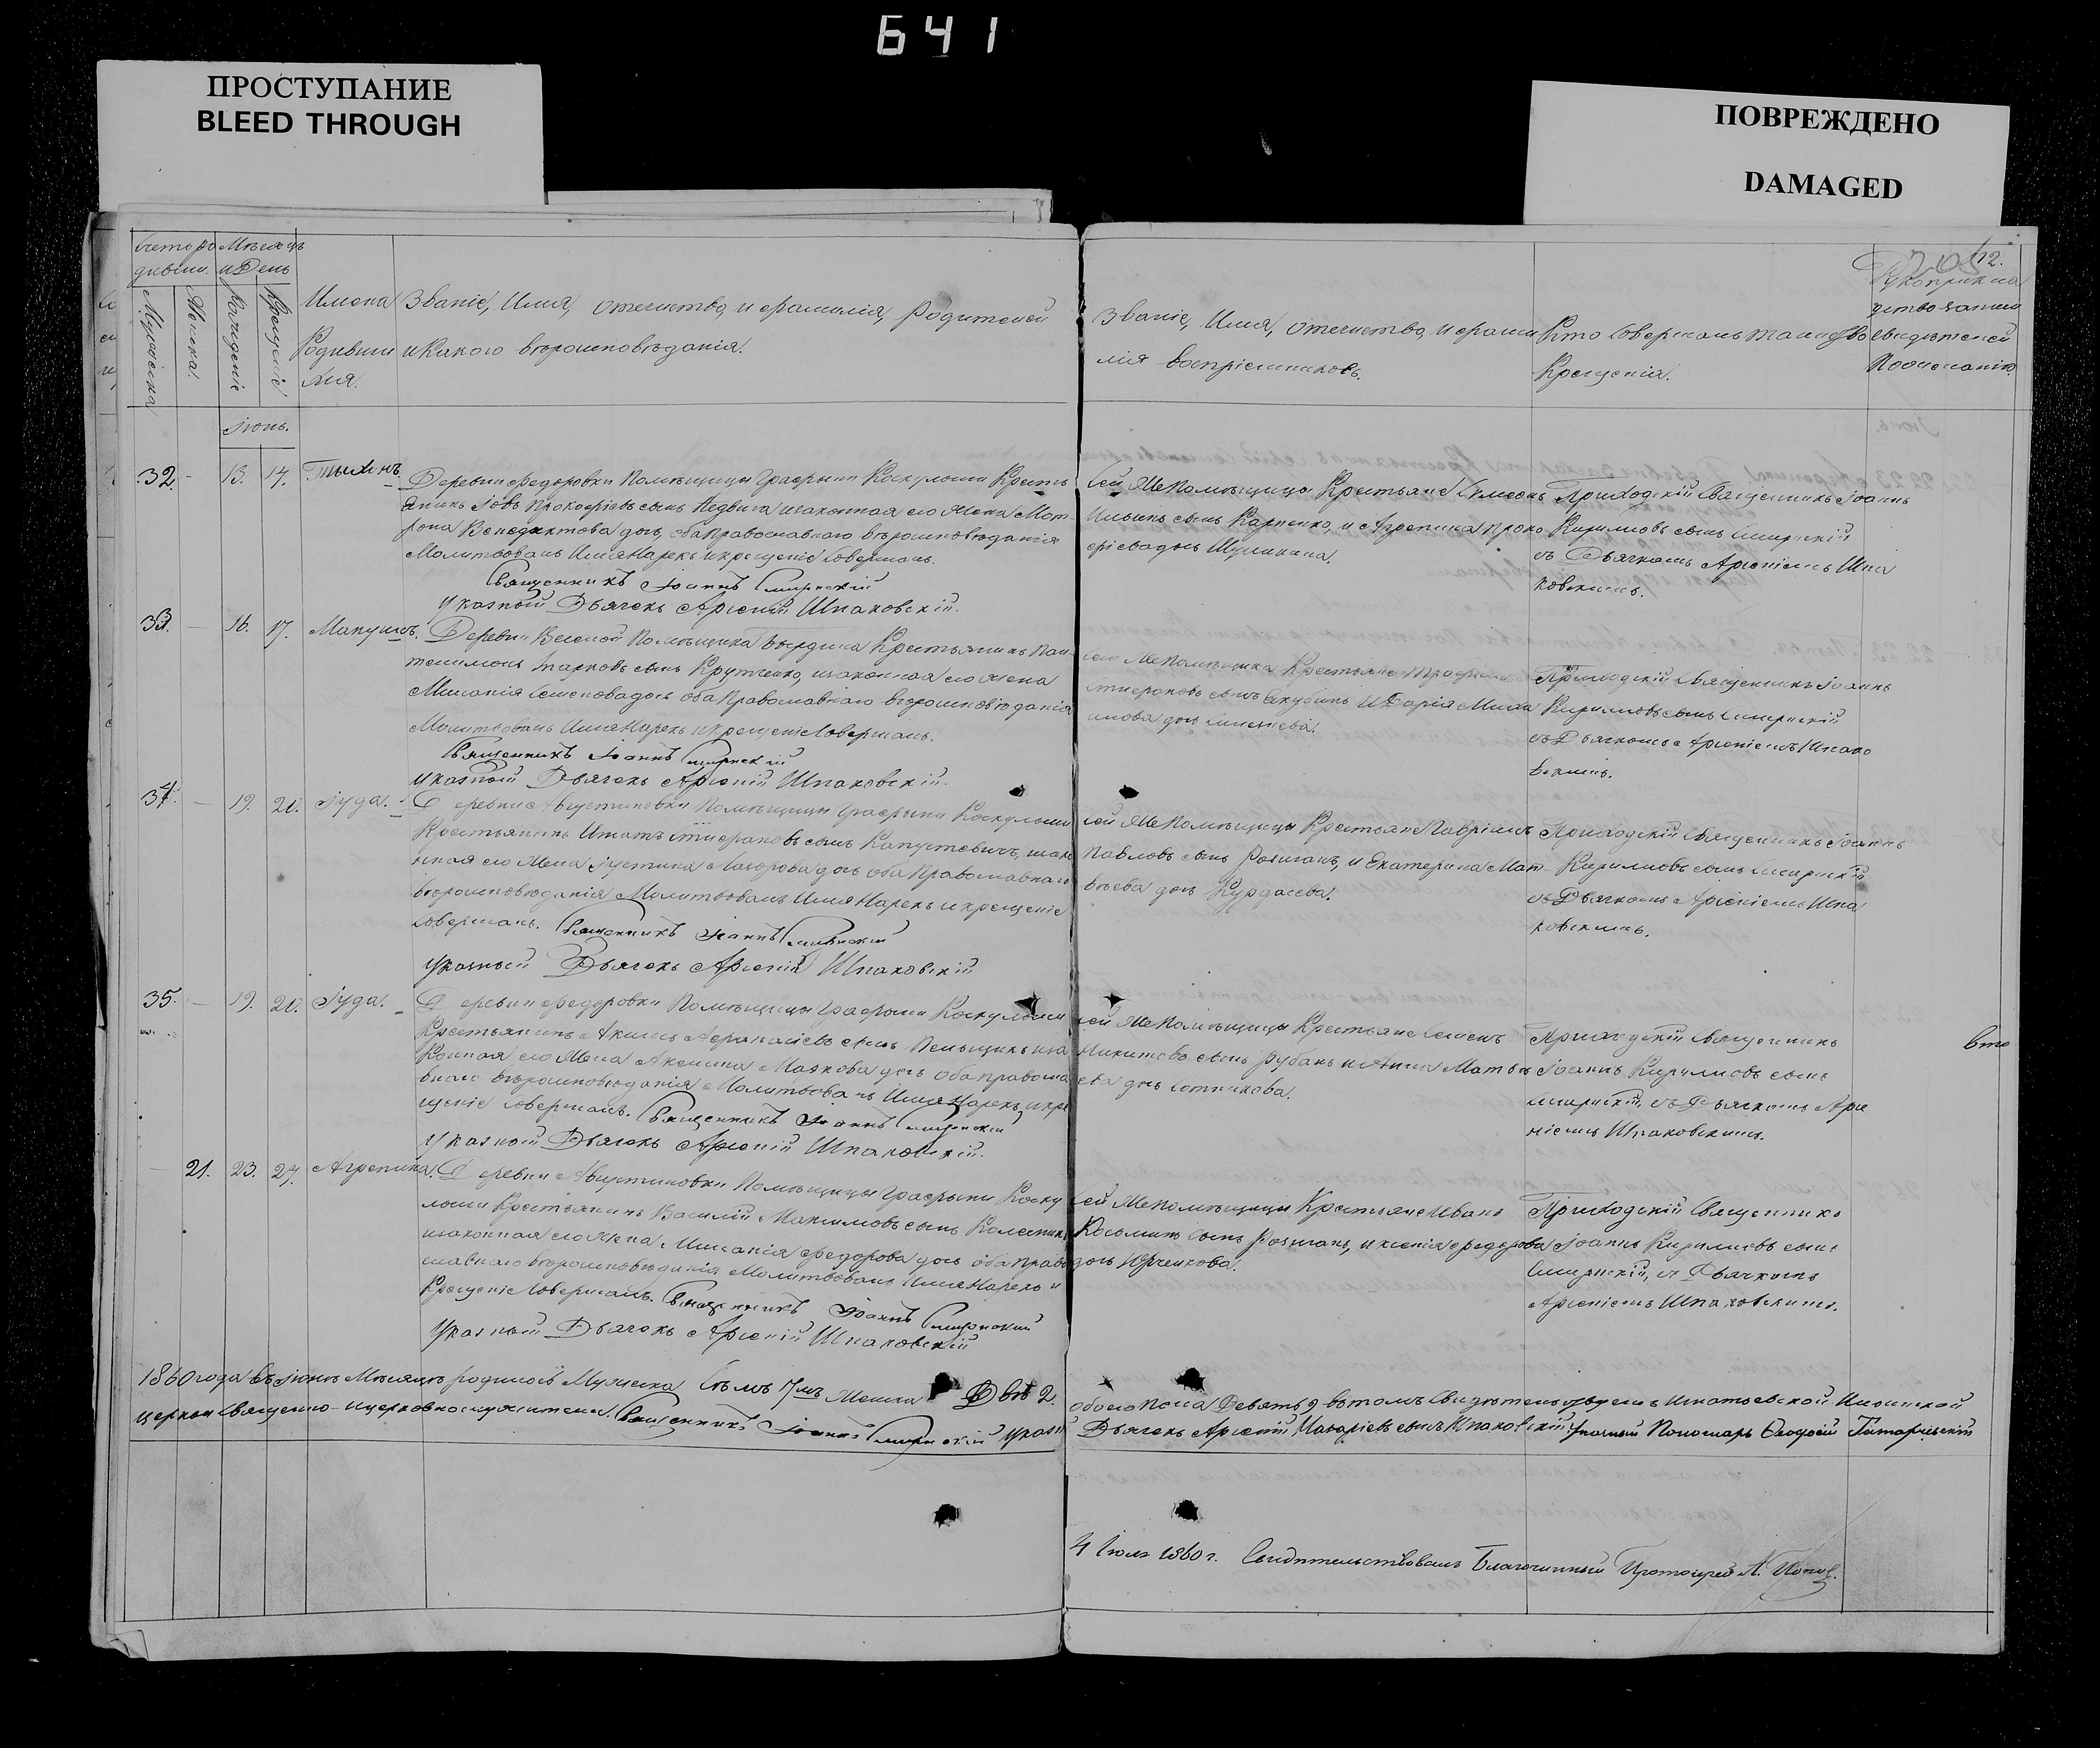 641
ПРОСТУПАНИЕ
BLEED THROUGH
ПОВРЕЖДЕНО
DAMAGED
12.
Счетъ ро Мѣсяцъ
дивши. и День
Мужеска
Женска.
Рожденіе
Крещеніе
Имена
Родивши
хся.
Званіе, Имя, отечество, и фамилія, Родителей
и Какого вѣроисповѣданія.
Званіе, Имя, отечество, и фами
лія воспріемниковъ.
Кто Совершалъ таинство
Крещенія.
Рукоприкла
дство
свидѣтелей
по желанію.
Іюнь.
32. - 13. 14. Тыхонъ.
Деревни Федоровки Помѣщицы Графыни Коскулыи Кресть
янинъ Іовъ Прокофіевъ сынъ Недвига изаконная его Жена Мат
рона Венедиктова дочь, оба Православнаго вѣроисповѣданія
Молитвовалъ Имя Нарекъ и крещеніе Совершалъ.
Священникъ Іоаннъ Смирнскій
Указный Дьячекъ Арсеній Шпаковскій.
Сей же Помѣщицы Крестьяне Симеонъ
Ильинъ сынъ Карпенко, и Агрепина Проко
фіева дочь
Приходскій Священникъ Іоаннъ
Кириловъ сынъ Смирнскій
съ Дьячкомъ Арсеніемъ Шпа
ковскимъ.
33. - 16. 17. Мануилъ.
Деревни Веселой Помѣщика Крестьянинъ Пан
телимонъ Марковъ сынъ Крутченко, изаконная его Жена
Миланія Семенова дочь оба Православнаго вѣроисповѣданія
Молитвовалъ Имя Нарекъ и крещеніе Совершалъ.
Священникъ Іоаннъ Смирнскій
Указный Дьячекъ Арсеній Шпаковскій.
Сего же Помѣщика Крестьяне Трофимъ
сынъ и Дарія Миха
илова дочь
Приходскій Священникъ Іоаннъ
Кириловъ сынъ Смирнскій
съ Дьячкомъ Арсеніемъ Шпако
вскимъ.
34. - 19. 20. Іуда.
Деревни Августиновки Помѣщицы Графыни Коскулыи
Крестьянинъ Игнатъ сынъ Капустевичъ, изако
нная его Жена Іустина Лазорова дочь оба Православнаго
вѣроисповѣданія Молитвовалъ Имя Нарекъ и крещеніе
Совершалъ. Священникъ Іоаннъ Смирнскій
Указный Дьячекъ Арсеній Шпаковскій
Сей же Помѣщицы Крестьяне Гавріилъ
Павловъ сынъ и Екатерина Мат-
вѣева дочь Курдасева.
Приходскій Священникъ Іоаннъ
Кириловъ сынъ Смирнскій
съ Дьячкомъ Арсеніемъ Шпа
ковскимъ.
35. - 19. 20. Іуда.
Деревни Федоровки Помѣщицы Графыни Коскулыи
Крестьянинъ Акимъ Афанасіевъ сынъ иза
конная его Жена Акелина Маркова дочь оба Правосла
внаго вѣроисповѣданія Молитвовалъ Имя Нарекъ и кре
щеніе Совершалъ. Священникъ Іоаннъ Смирнскій
Указный Дьячекъ Арсеній Шпаковскій.
Сей же Помѣщицы Крестьяне Семенъ
Никитовъ сынъ Рубанъ и Анна Матве
ева дочь Сотникова.
Приходскій Священникъ
Іоаннъ Кириловъ сынъ
Смирнскій, съ Дьячкомъ Арсе
ніемъ Шпаковскимъ.
21. 23. 24. Агрепина.
Деревни Августиновки Помѣщицы Графыни Коску
лыи Крестьянинъ Василій Максимовъ сынъ Колесникъ
изаконная его Жена Миланія Федорова дочь оба Право
славнаго вѣроисповѣданія Молитвовалъ Имя Нарекъ и
Крещеніе Совершалъ. Священникъ Іоаннъ Смирнскій
Указный Дьячекъ Арсеній Шпаковскій
Сей же Помѣщицы Крестьяне Иванъ
сынъ и Ксенія Федорова
дочь Юрченкова.
Приходскій Священникъ
Іоаннъ Кириловъ сынъ
Смирнскій, съ Дьячкомъ
Арсеніемъ Шпаковскимъ.
1860 года въ Іюнѣ Мѣсяцѣ родилось Мужеска Семь 7мь Женска Двѣ 2. обоего пола Девять 9 въ томъ Свидѣтельствуемъ Игнатьевской Ильинской
церкви Священно-ицерковнослужители. Священникъ Іоаннъ Смирнскій Указный Дьячекъ Арсеній сынъ Шпаковскій Указный Пономарь Феодосій
4 Іюля 1860 г. Свидѣтельствовалъ Благочинный Протоіерей А. Поповъ.